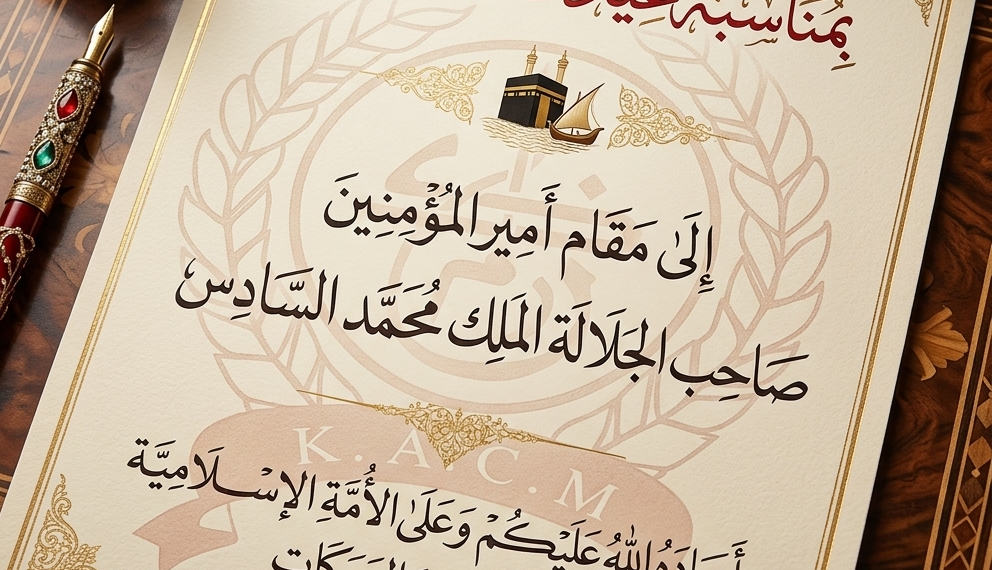 بِمُنَاسَبَة
إِلَىٰ مَقَام أَمِير المُؤْمِنِينَ
صَاحِب الجَلَالَة المَلِك مُحَمَّد السَّادِس
K.A.C.M
أَعَادَهُ اللهُ عَلَيْكُمْ وَعَلَىٰ الأُمَّةِ الإِسْلَامِيَّة